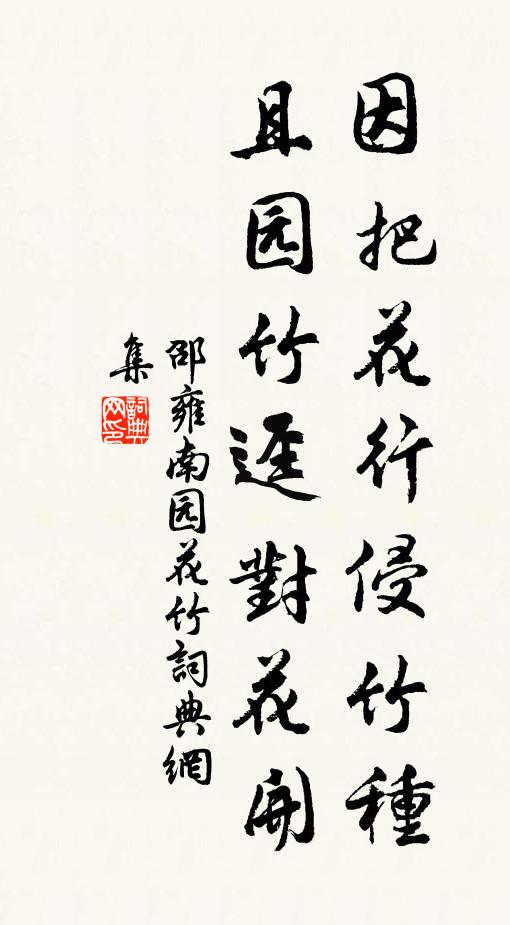 因把花行侵竹種
且园竹逕對花開
邵雍南园花竹詞典網
集
詞典网印